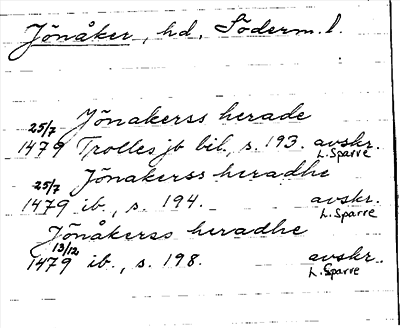 Jönåker, hd, Söderm. l.
Jönakerss herade
25/7 1479 Trolles jb bil., s. 193. avskr. L. Sparre
Jönakerss heradhe
25/7 1479 ib., s. 194. avskr. L. Sparre
Jönåkerss heradhe
13/12 1479 ib., s. 198. avskr. L. Sparre